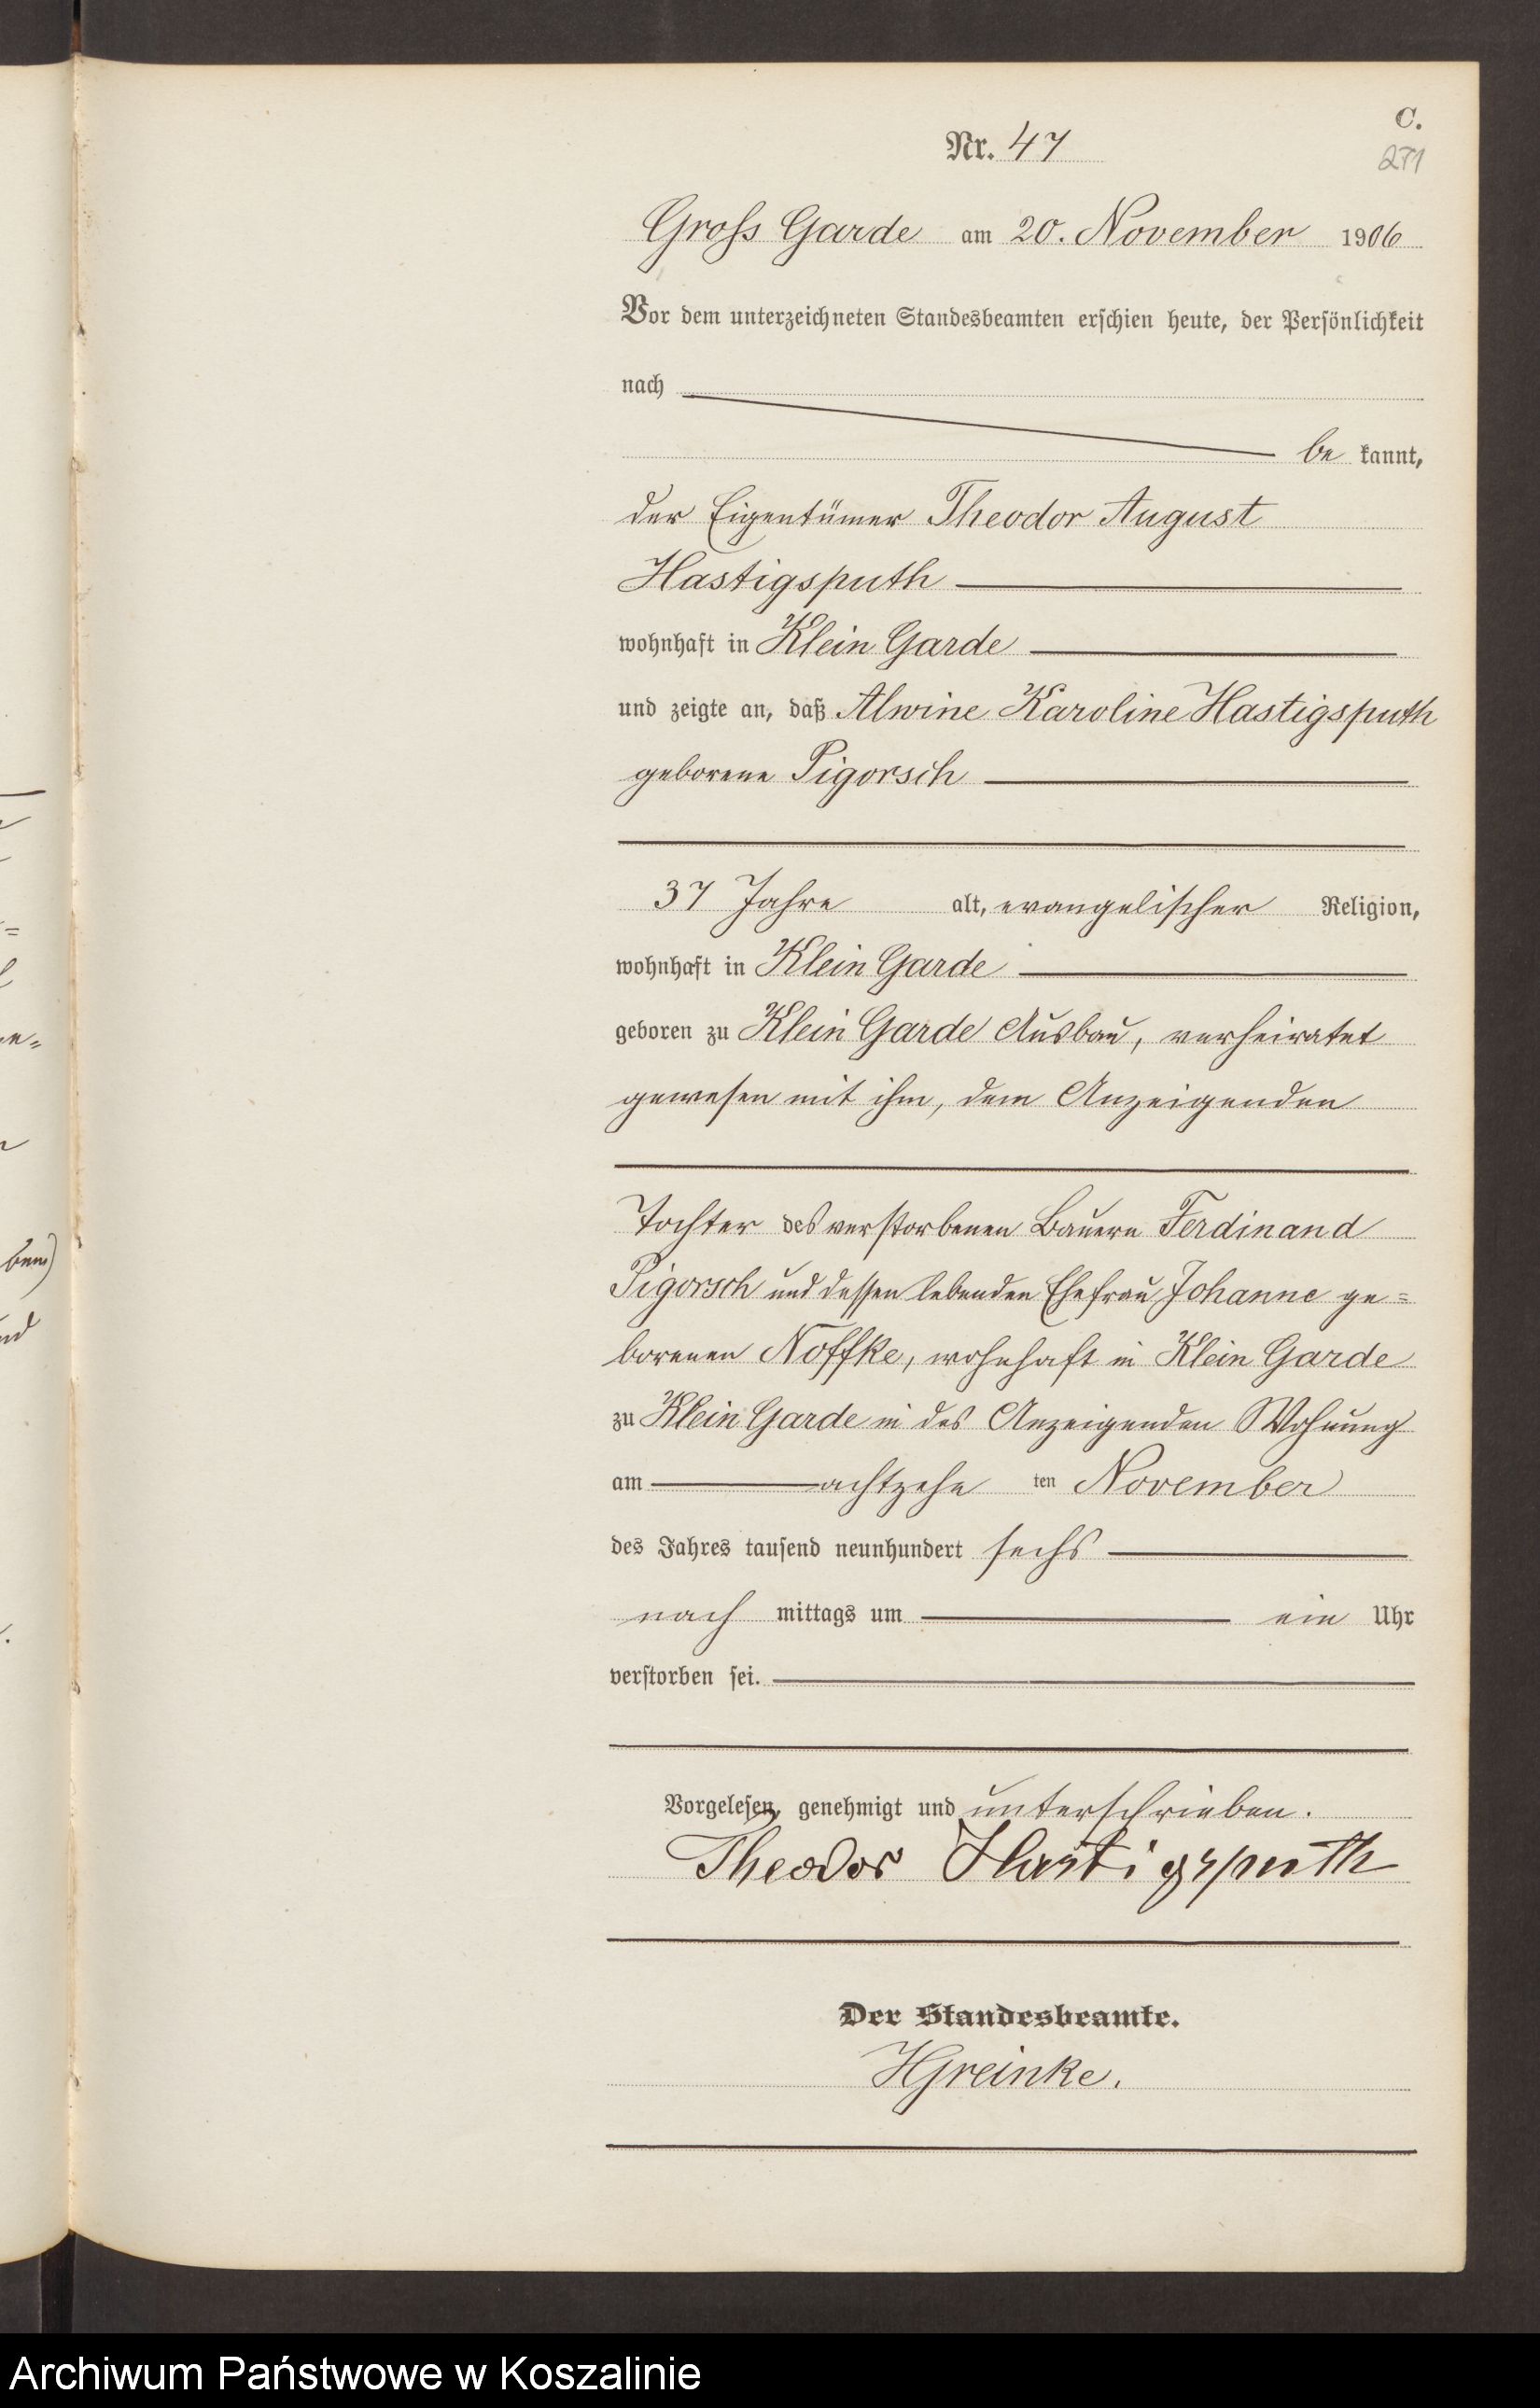 C.
Nr. 47
271
Gross Garde am 20. November 1906
Vor dem unterzeichneten Standesbeamten erschien heute, der Persönlichkeit
nach
be kannt,
der Eigentümer Theodor August
Hastigsputh
wohnhaft in Klein Garde
und zeigte an, daß Alwine Karoline Hastigsputh
geborene Pigorsch
37 Jahre alt, evangelischer Religion,
wohnhaft in Klein Garde
geboren zu Klein Garde Ausbau, verheiratet
gewesen mit ihm, dem Anzeigenden
Tochter des verstorbenen Bauern Ferdinand
Pigorsch und dessen lebenden Ehefrau Johanne ge=
borenen Noffke, wohnhaft in Klein Garde
zu Klein Garde in des Anzeigenden Wohnung
am achtzehn ten November
des Jahres tausend neunhundert sechs
nach mittags um ein Uhr
verstorben sei.
Vorgelesen, genehmigt und unterschrieben.
Theodor Hastigsputh
Der Standesbeamte.
HGreinke.
Archiwum Państwowe w Koszalinie